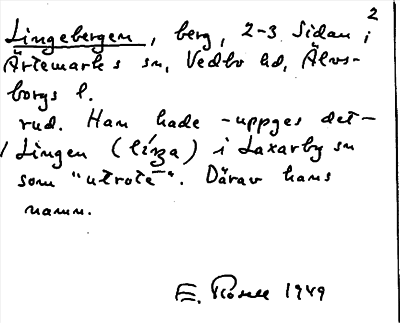 2
Lingebergen, berg, 2-3 Sidan i
Ärtemarks sn, Vedbo hd, Älvs-
borgs l.
rud. Han hade - uppges det -
/ Lingen (líŋa) i Laxarby sn
som "utrote". Därav hans
namn.
E. Rosell 1949